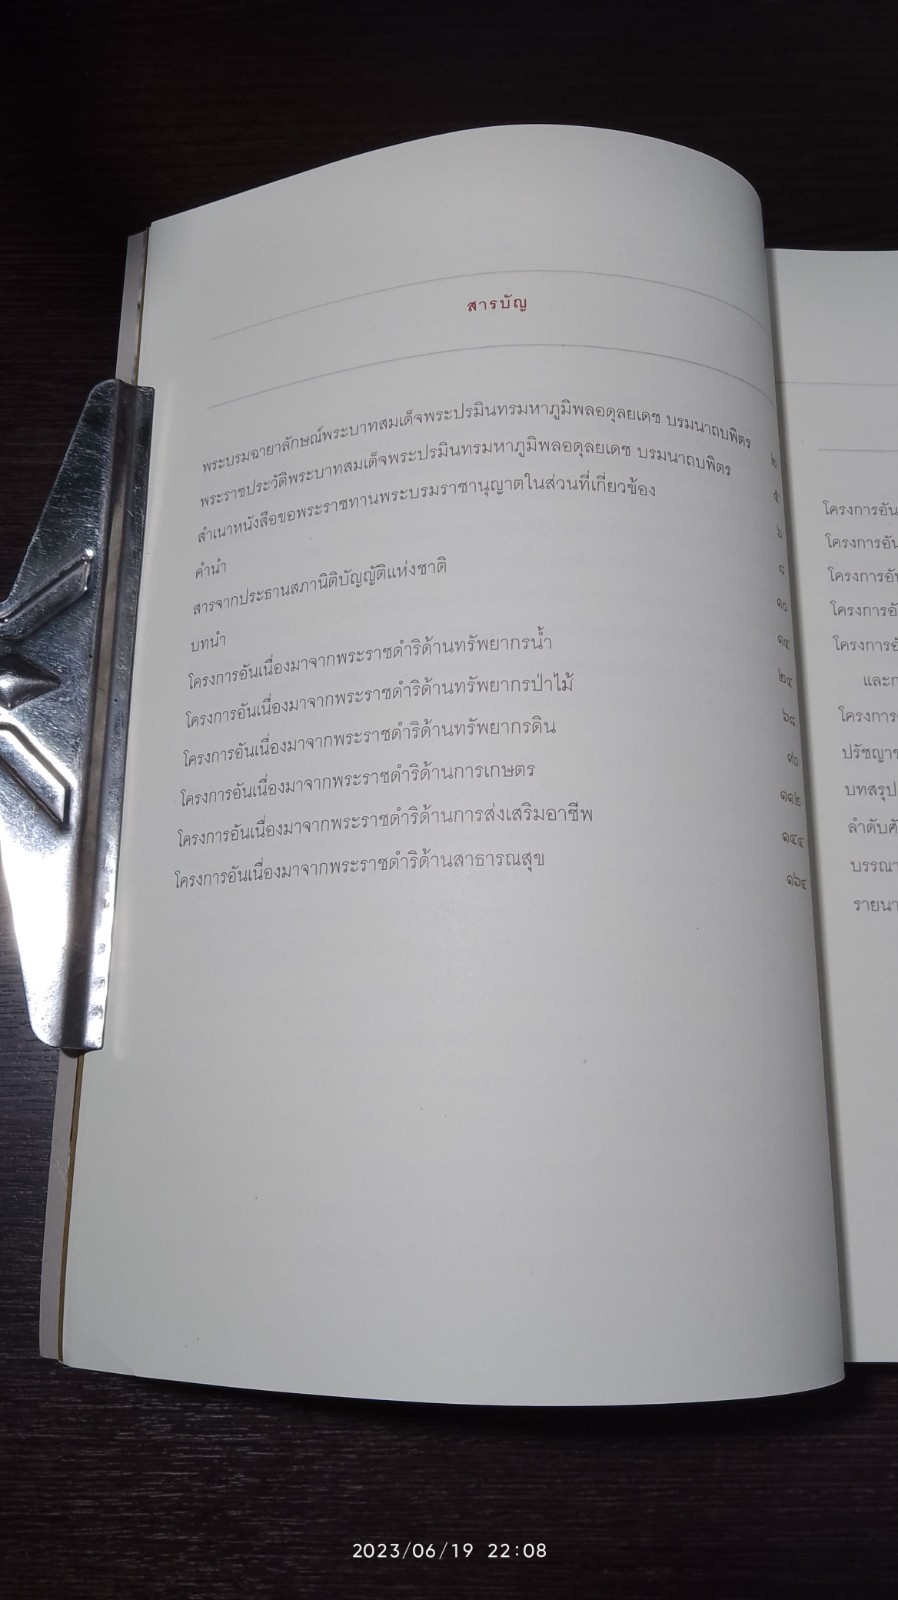 สารบัญ
พระบรมฉายาลักษณ์พระบาทสมเด็จพระปรมินทรมหาภูมิพลอดุลยเดช บรมนาถบพิตร ๒
พระราชประวัติพระบาทสมเด็จพระปรมินทรมหาภูมิพลอดุลยเดช บรมนาถบพิตร ๕
สำเนาหนังสือขอพระราชทานพระบรมราชานุญาตในส่วนที่เกี่ยวข้อง ๖
คำนำ ๘
สารจากประธานสภานิติบัญญัติแห่งชาติ ๑๐
บทนำ ๑๔
โครงการอันเนื่องมาจากพระราชดำริด้านทรัพยากรน้ำ ๒๔
โครงการอันเนื่องมาจากพระราชดำริด้านทรัพยากรป่าไม้ ๖๘
โครงการอันเนื่องมาจากพระราชดำริด้านทรัพยากรดิน ๙๐
โครงการอันเนื่องมาจากพระราชดำริด้านการเกษตร ๑๑๒
โครงการอันเนื่องมาจากพระราชดำริด้านการส่งเสริมอาชีพ ๑๔๔
โครงการอันเนื่องมาจากพระราชดำริด้านสาธารณสุข ๑๖๔
โครงการอัน
โครงการอัน
โครงการอัน
โครงการอั
โครงการอั
และก
โครงการ
ปรัชญา
บทสรุป
ลำดับศั
บรรณา
รายนา
2023/06/19 22:08